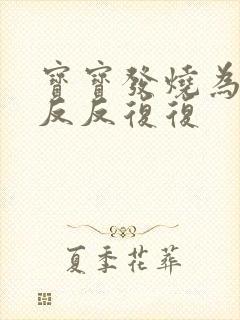 寶寶發燒為
反反復復
夏季花葬